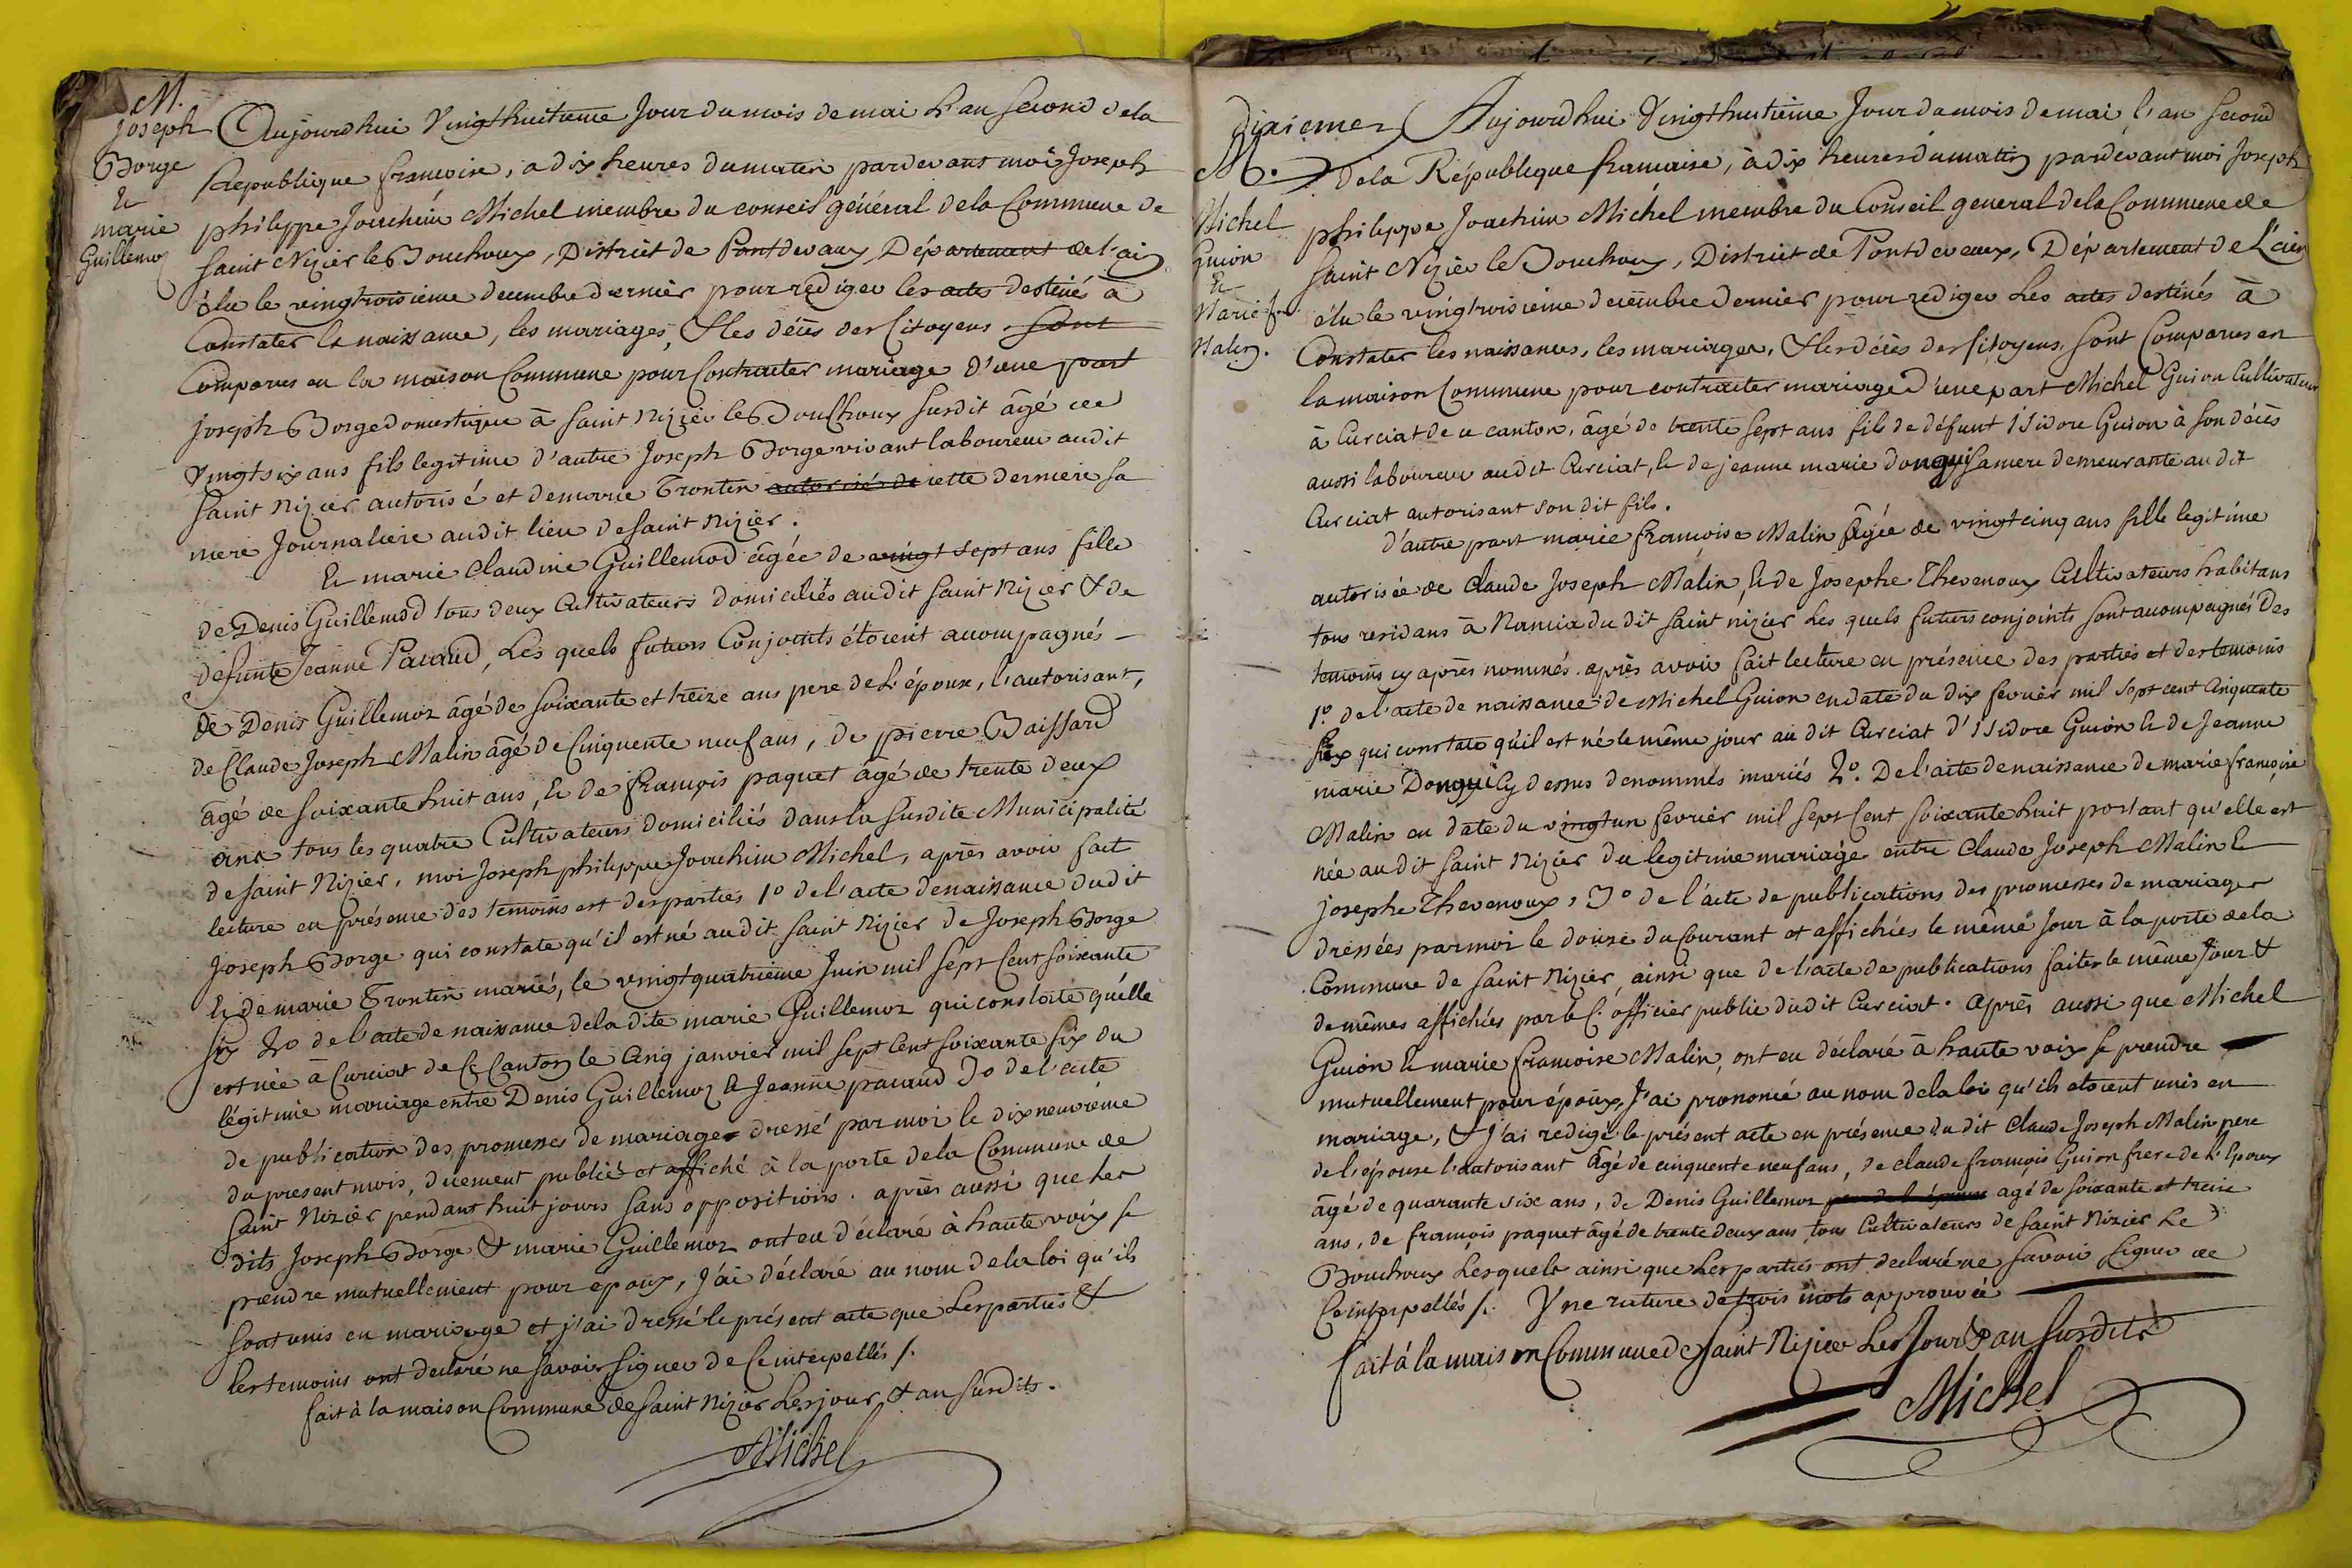 M.
Joseph
Borge
Et
marie
Guillemoz
Aujourdhui Vingthuitieme Jour du mois de mai L'an second dela
Republique francoise, a dix heures du matin pardevant moi Joseph
philippe Joachim Michel membre du conseil général dela Commune de
saint Nizier le Bouchoux, District de Pontdevaux, Département de l'ain
élu le vingtroisieme decembre dernier pour rediger les actes destinés à
Constater la naissance, les mariages, & les décès des Citoyens. sont
Comparus en la maison Commune pour Contracter mariage d'une part
Joseph Borge domestique à saint Nizier le Bouchoux susdit âgé de
Vingt six ans fils legitime d'autre Joseph Borge vivant laboureur audit
saint Nizier autorisé et de marie Trontin autorisés de cette derniere sa
mere Journaliere audit lieu de saint Nizier.
Et marie Claudine Guillemod âgée de vingt sept ans fille
de Denis Guillemod tous deux Cultivateurs domiciliés audit saint Nizier & de
defunte Jeanne Pavaud, Les quels futurs Conjoints étoient accompagnés
de Denis Guillemoz âgé de soixante et treize ans pere de L'épouse, l'autorisant,
de Claude Joseph Malin âgé de Cinquente neuf ans, de pierre Baissard
âgé de soixante huit ans, Et de françois paquet âgé de trente deux
ans tous les quatre Cultivateurs domiciliés dans la susdite Municipalité
de saint Nizier, moi Joseph philippe Joachim Michel, après avoir fait
lecture en présence des temoins et des parties 1° de l'acte de naissance dudit
Joseph Borge qui constate qu'il est né audit saint Nizier de Joseph Borge
Et de marie Trontin mariés, le vingtquatrieme Juin mil sept Cent soixante
six 2° de l'acte de naissance dela dite marie Guillemoz qui constate qu'elle
est née à Curciat de Ce Canton le Cinq janvier mil sept Cent soixante six du
légitimie mariage entre Denis Guillemoz Et Jeanne pavaud 3° de l'acte
de publication des promesses de mariage dressé par moi le dixneuvieme
du present mois, duement publié et affiché à la porte dela Commune de
saint Nizier pendant huit jours sans oppositions. après aussi que les
dits Joseph Borge & marie Guillemoz ont eu déclaré à haute voix se
prendre mutuellement pour epoux, J'ai déclaré au nom dela loi qu'ils
sont unis en mariage et j'ai dressé le présent acte que les parties &
les temoins ont declaré ne savoir signer de Ce interpellés /.
fait à la maison Commune de saint Nizier Les jour & an susdits.
Michel
dixieme
M.
Michel
Guion
Et
Marie fse
Malin.
Aujourdhui Vingthuitieme Jour du mois de mai l'an second
dela République francaise, à dix heures du matin pardevant moi Joseph
philippe Joachim Michel membre du Conseil general dela Commune de
saint Nizier le Bouchoux, District de Pontdevaux, Département de L'ain
élu le vingtroisieme decembre dernier pour rediger Les actes destinés à
Constater les naissances, les mariages, & les décès des Citoyens, sont Comparus en
la maison Commune pour contracter mariage d'une part Michel Guion Cultivateur
à Curciat de ce canton, âgé de trente sept ans fils de défunt Isidore Guion à son décès
aussi laboureur audit Curciat, Et de jeanne marie donguy sa mere demeurante audit
Curciat autorisant son dit fils.
d'autre part marie francoise Malin âgée de vingtcinq ans fille legitime
autorisée de Claude Joseph Malin, Et de Josephe Thevenoux Cultivateurs habitans
tous residans à Nancia du dit saint nizier Les quels futurs conjoints sont accompagnés Des
temoins cy après nommés. après avoir fait lecture en présence des parties et des temoins
1° de l'acte de naissance de Michel Guion en date du dix fevrier mil sept cent Cinquente
six qui constate qu'il est né le même jour au dit Curciat d'Isidore Guion Et de Jeanne
marie Donguy Cy dessus denommés mariés 2°. De l'acte de naissance de marie francoise
Malin en date du vingtun fevrier mil sept Cent soixante huit portant qu'elle est
née au dit saint Nizier du legitime mariage entre Claude Joseph Malin Et
josephe Thevenoux, 3° de l'acte de publications des promesses de mariages
dressées par moi le douze du Courant et affichés le même Jour à la porte dela
Commune de saint Nizier, ainsi que de l'acte de publications faites le même Jour &
de mêmes affichées par le C. officier public dudit Curciat. après aussi que Michel
Guion Et marie francoise Malin, ont eu déclaré à haute voix se prendre
mutuellement pour époux, J'ai prononcé au nom dela loi qu'ils etoient unis en
mariage, & j'ai redigé le présent acte en présence du dit Claude Joseph Malin pere
de l'épouse l'autorisant âgé de cinquente neuf ans, de claude françois Guion frere de L'époux
âgé de quarante six ans, de Denis Guillemoz pere de l'épouse agé de soixante et treize
ans, de françois paquet âgé de trente deux ans, tous Cultivateurs de saint Nizier Le
Bouchoux Lesquels ainsi que Les parties ont declaré ne savoir signer de
Ce interpellés /. Une rature de trois mots approuvée
fait à la maison Commune de saint Nizier Les Jour & an susdits
Michel